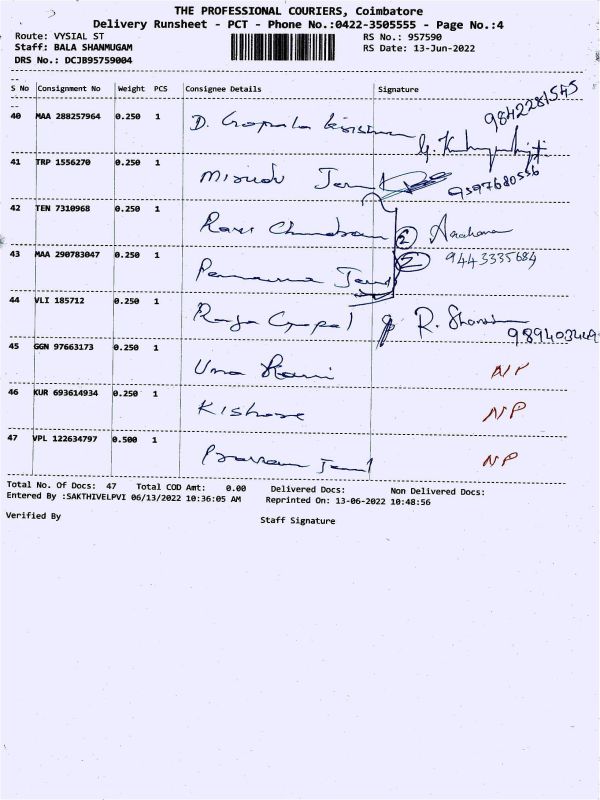 THE PROFESSIONAL COURIERS, Coimbatore
Delivery Runsheet - PCT - Phone No.:0422-3505555 - Page No.:4
Route: VYSIAL ST RS No.: 957590
Staff: BALA SHANMUGAM RS Date: 13-Jun-2022
DRS No.: DCJB95759004
S No Consignment No Weight PCS Consignee Details Signature
9842281545
40 MAA 288257964 0.250 1 D. Gopala
41 TRP 1556270 0.250 1
9597680556
42 TEN 7310968 0.250 1 Ravi Chandran 2
43 MAA 290783047 0.250 1 9443335684
44 VLI 185712 0.250 1 Raja Gopal R.
45 GGN 97663173 0.250 1 Uma Rani NP
46 KUR 693614934 0.250 1 Kishore NP
47 VPL 122634797 0.500 1 NP
Total No. Of Docs: 47 Total COD Amt: 0.00 Delivered Docs: Non Delivered Docs:
Entered By :SAKTHIVELPVI 06/13/2022 10:36:05 AM Reprinted On: 13-06-2022 10:48:56
Verified By
Staff Signature